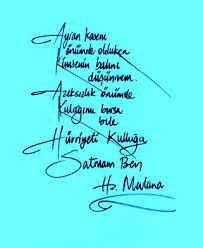 Ayran Kasem
önümde oldukça
Kimsenin balını
düşünmem.
Azıksızlık önümde
Kulağımı bursa
bile
Hürriyeti Kulluğa
Satmam Ben
Hz. Mevlana